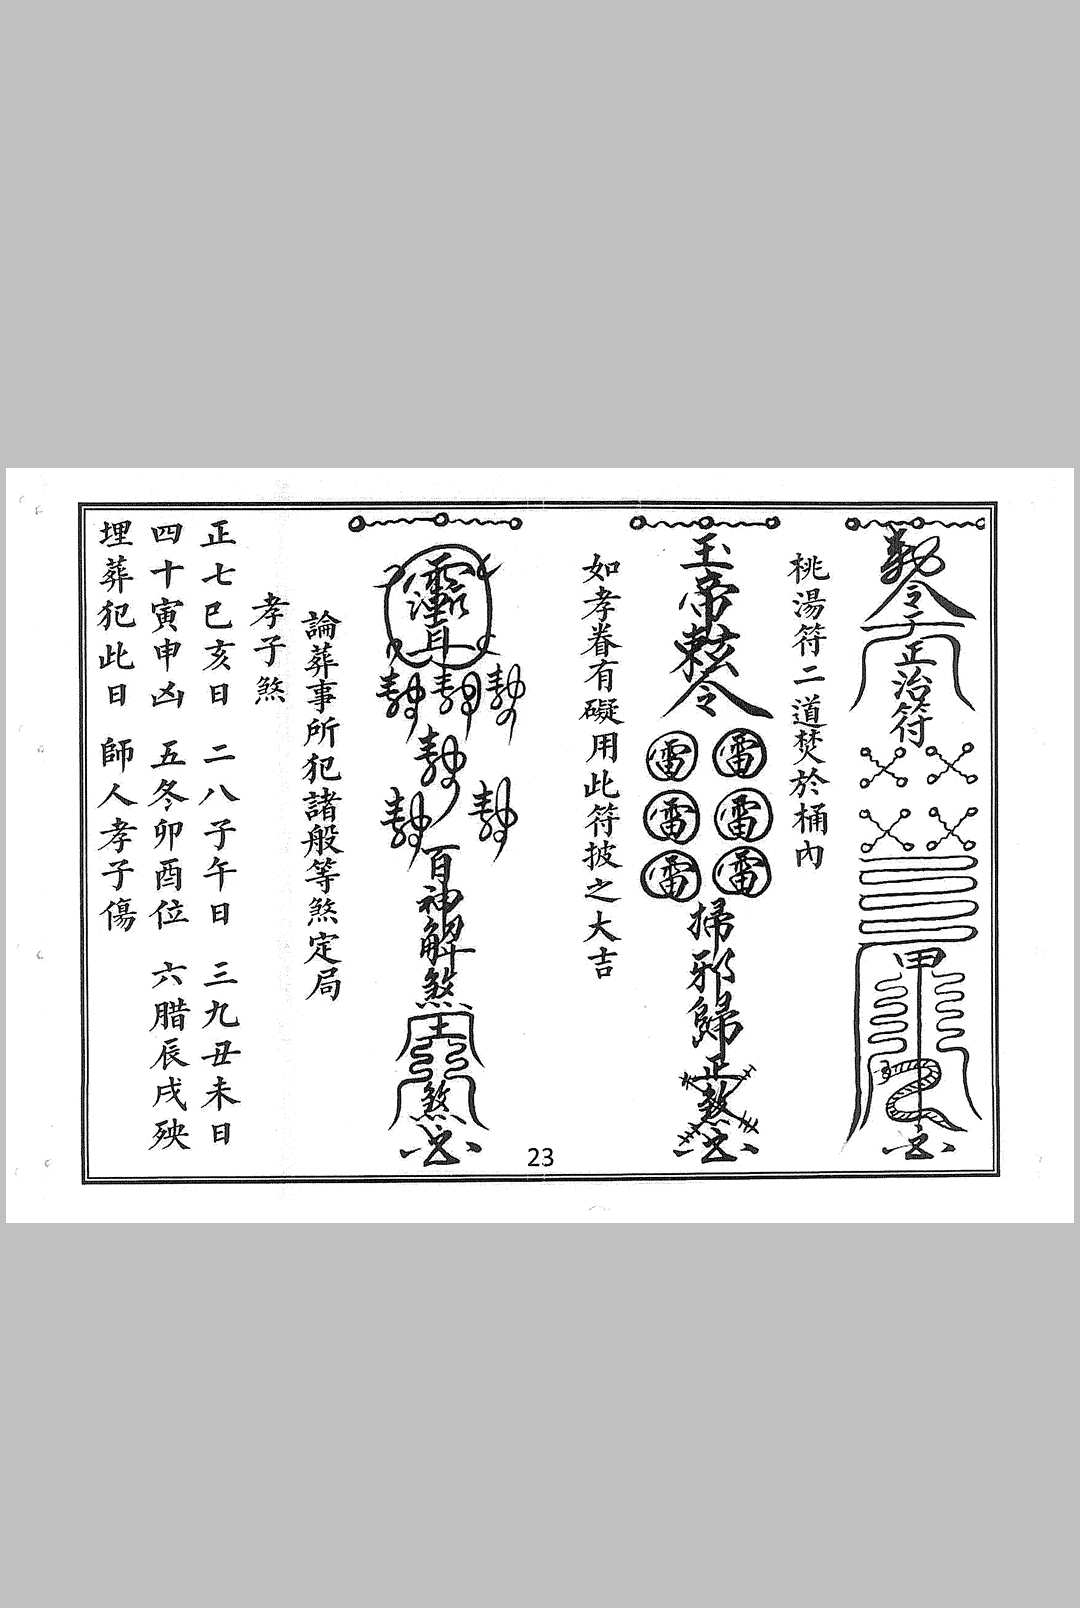 令
正治符
甲
桃湯符二道焚於桶內
玉帝敕令
雷 雷
雷 雷
雷 雷
掃邪歸正煞
如孝眷有礙用此符披之大吉
百神解煞
煞
論葬事所犯諸般等煞定局
孝子煞
正七巳亥日 二八子午日 三九丑未日
四十寅申凶 五冬卯酉位 六腊辰戌殃
埋葬犯此日 師人孝子傷
23